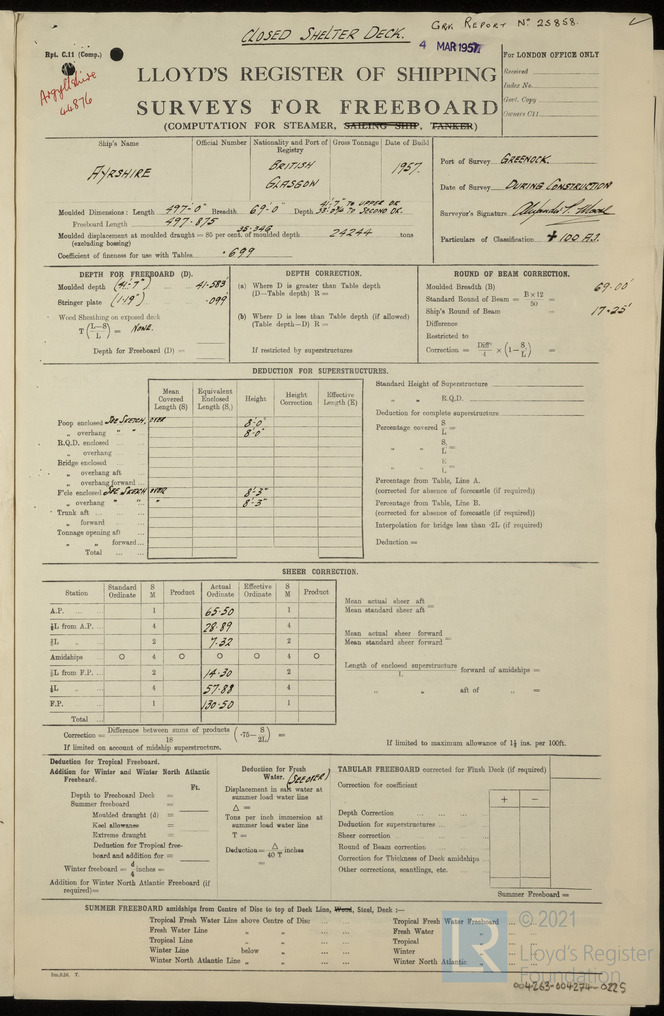 CLOSED SHELTER DECK.
GRK REPORT No 25858.
4 MAR 1957
Rpt. C.11 (Comp.)
Argyllshire
44876
LLOYD'S REGISTER OF SHIPPING
SURVEYS FOR FREEBOARD
(COMPUTATION FOR STEAMER, SAILING SHIP, TANKER)
For LONDON OFFICE ONLY
Received
Index No.
Govt. Copy
Owners C11
Ship's Name Official Number Nationality and Port of Registry Gross Tonnage Date of Build
AYRSHIRE BRITISH GLASGOW 1957.
Port of Survey GREENOCK.
Date of Survey DURING CONSTRUCTION
Surveyor's Signature
Particulars of Classification + 100 A.1.
Moulded Dimensions: Length 497'-0" Breadth 69'-0" Depth 41'-7" TO UPPER DK. TO SECOND DK.
Freeboard Length 497.875
Moulded displacement at moulded draught = 85 per cent. of moulded depth 35.346 24244 tons
(excluding bossing)
Coefficient of fineness for use with Tables .699
DEPTH FOR FREEBOARD (D).
Moulded depth (41'-7") 41.583
Stringer plate (1.19") .099
Wood Sheathing on exposed deck
T (L-S/L) = NONE.
Depth for Freeboard (D) =
DEPTH CORRECTION.
(a) Where D is greater than Table depth
(D—Table depth) R =
(b) Where D is less than Table depth (if allowed)
(Table depth—D) R =
If restricted by superstructures
ROUND OF BEAM CORRECTION.
Moulded Breadth (B) 69.00'
Standard Round of Beam = B×12/50 =
Ship's Round of Beam = 17.25"
Difference
Restricted to
Correction = Diffce/4 × (1-S/L) =
DEDUCTION FOR SUPERSTRUCTURES.
Mean Covered Length (S) Equivalent Enclosed Length (S₁) Height Height Correction Effective Length (E)
Poop enclosed SEE SKETCH OVER 8'-0"
„ overhang „ „ 8'-0"
R.Q.D. enclosed
„ overhang
Bridge enclosed
„ overhang aft
„ overhang forward
F'cle enclosed SEE SKETCH OVER 8'-3"
„ overhang „ „ „ 8'-3"
Trunk aft
„ forward
Tonnage opening aft
„ „ forward
Total
Standard Height of Superstructure
„ „ R.Q.D.
Deduction for complete superstructure
Percentage covered S/L =
„ „ S₁/L =
„ „ E/L =
Percentage from Table, Line A.
(corrected for absence of forecastle (if required))
Percentage from Table, Line B.
(corrected for absence of forecastle (if required))
Interpolation for bridge less than ·2L (if required)
Deduction =
SHEER CORRECTION.
Station Standard Ordinate S M Product Actual Ordinate Effective Ordinate S M Product
A.P. 1 65.50 1
⅙L from A.P. 4 28.89 4
⅓L „ 2 7.32 2
Amidships O 4 O O O 4 O
⅓L from F.P. 2 14.30 2
⅙L „ 4 57.88 4
F.P. 1 130.50 1
Total
Mean actual sheer aft
Mean standard sheer aft =
Mean actual sheer forward
Mean standard sheer forward =
Length of enclosed superstructure/L forward of amidships =
„ „ aft of „ =
Correction = Difference between sums of products/18 (·75-S/2L) =
If limited on account of midship superstructure.
If limited to maximum allowance of 1½ ins. per 100ft.
Deduction for Tropical Freeboard.
Addition for Winter and Winter North Atlantic Freeboard.
Ft.
Depth to Freeboard Deck =
Summer freeboard =
Moulded draught (d) =
Keel allowance =
Extreme draught =
Deduction for Tropical freeboard and addition for =
Winter freeboard = d/4 inches =
Addition for Winter North Atlantic Freeboard (if required)=
Deduction for Fresh Water. (SEE OVER)
Displacement in salt water at summer load water line
Δ =
Tons per inch immersion at summer load water line
T =
Deduction = Δ/40 T inches
=
TABULAR FREEBOARD corrected for Flush Deck (if required)
Correction for coefficient
+ −
Depth Correction
Deduction for superstructures
Sheer correction
Round of Beam correction
Correction for Thickness of Deck amidships
Other corrections, scantlings, etc.
Summer Freeboard =
SUMMER FREEBOARD amidships from Centre of Disc to top of Deck Line, Wood, Steel, Deck :—
Tropical Fresh Water Line above Centre of Disc
Fresh Water Line „ „
Tropical Line „ „
Winter Line below „
Winter North Atlantic Line „ „
Tropical Fresh Water Freeboard
Fresh Water „
Tropical „
Winter „
Winter North Atlantic „
LR
© 2021
Lloyd's Register
Foundation
004263-004274-0225